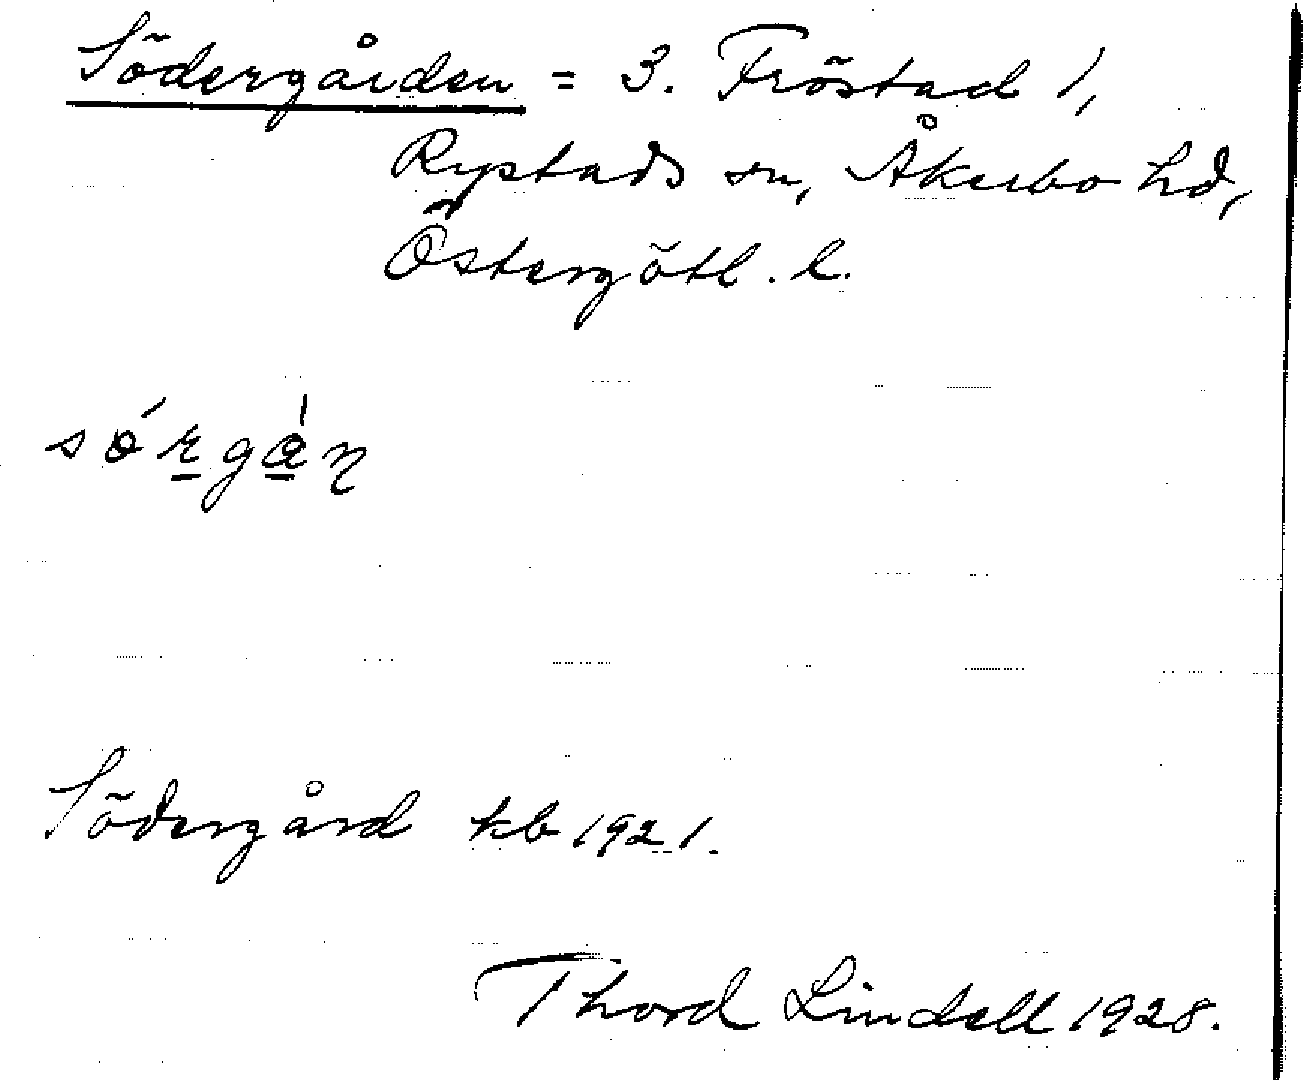 Södergården = 3. Fröstad 1,
Rystads sn, Åkerbo hd,
Östergötl. l.
sǿrgån
Södergård kb 1921.
Thord Lindell 1928.